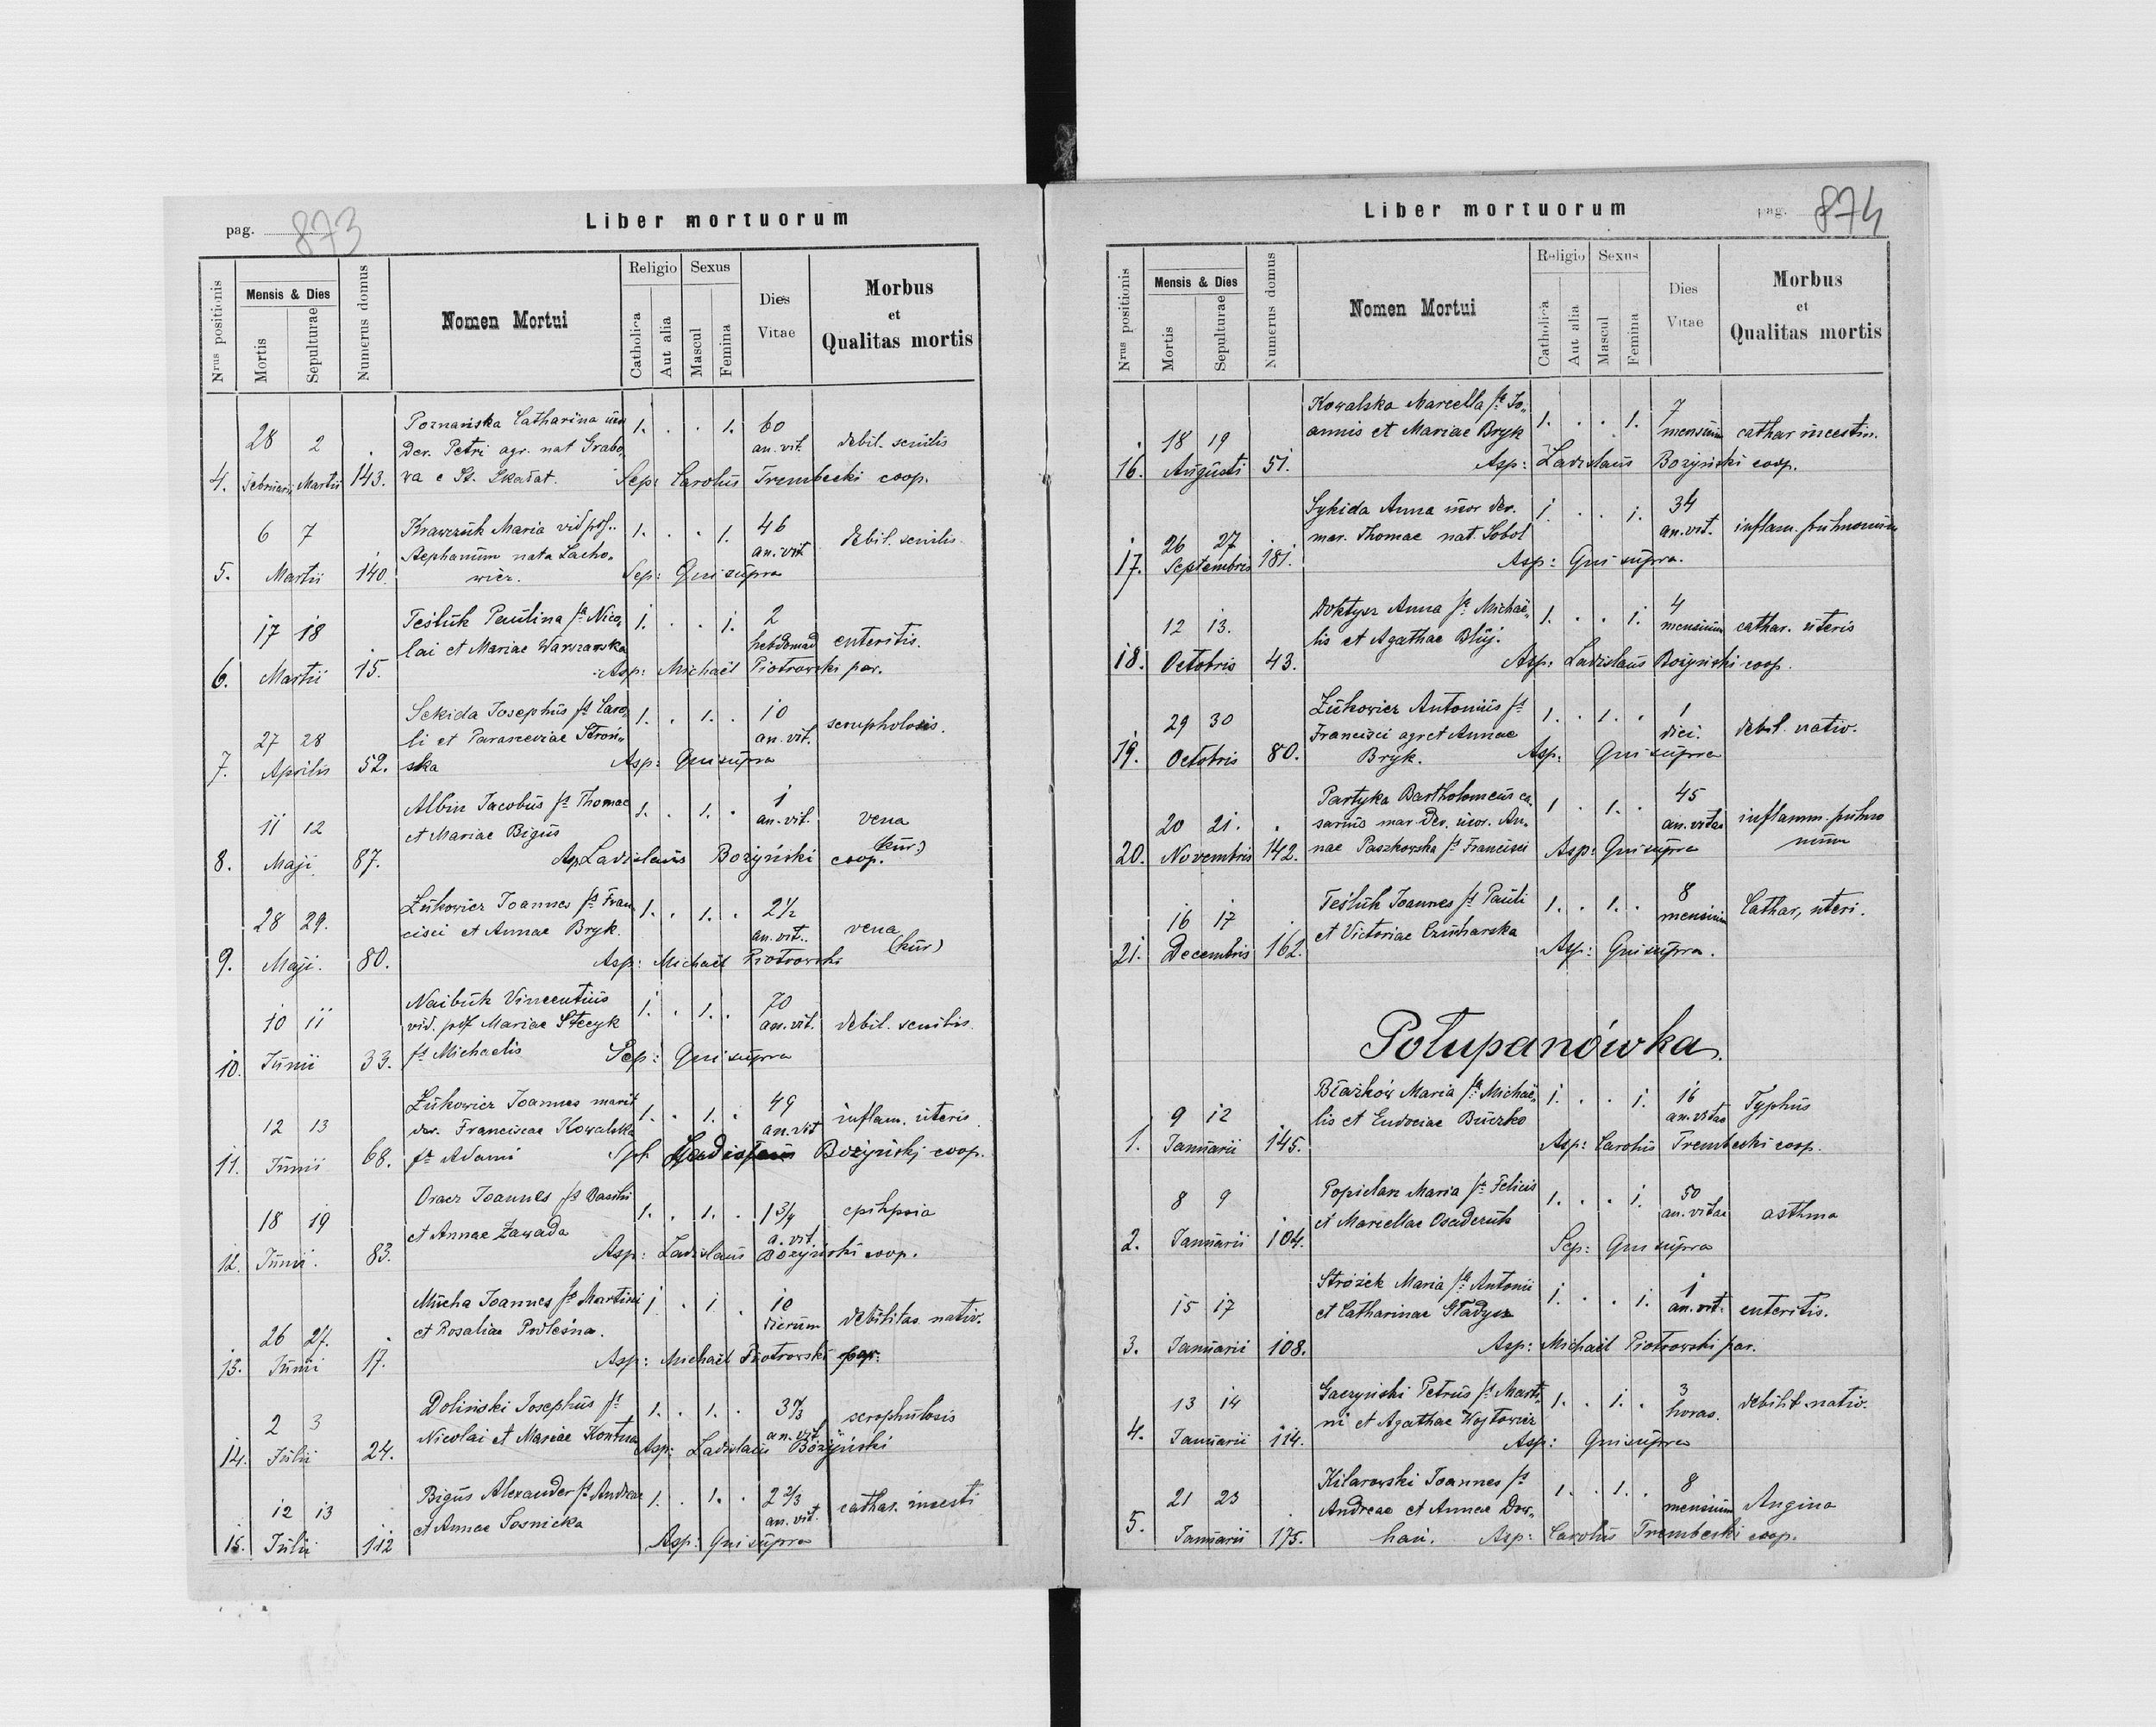 pag. 873
Liber mortuorum
Nrus positionis
Mensis & Dies
Mortis
Sepulturae
Numerus domus
Nomen Mortui
Religio
Catholica
Aut alia
Sexus
Mascul
Femina
Dies Vitae
Morbus
et
Qualitas mortis
Poznańska Catharina
28 2 1. . . 1. 60
Der. Petri agr. nat Grabo, an. vit. debil. senilis
4. Februarii Martii 143. va e St. Skałat. Sep: Carolus Trembecki coop.
6 7 Krawczuk Maria vid. post. 1. . . 1. 46
Stephanum nata Lacho, an. vit debil. senilis
5. Martii 140. wicz. Sep: Qui supra
17 18 Teśluk Paulina fa Nico, 1. . . 1. 2
lai et Mariae Warszawska hebdomad enteritis.
6. Martii 15. Asp: Michaël Piotrowski par.
Sekida Josephus fs Caro, 1. . 1. . 10
27 28 li et Parasceviae Stroń, an. vit. scropholosis.
7. Aprilis 52. ska Asp: Qui supra
Albin Jacobus fs Thomae 1. . 1. . 1
11 12 et Mariae Bigus an. vit. vena
(kur)
8. Maji 87. Asp Ladislaus Bożyński coop.
Żukowicz Joannes fs Fran 1. . 1. . 2½
28 29. cisci et Annae Bryk. an. vit.. vena
(kur)
9. Maji. 80. Asp: Michaël Piotrowski
Naibuk Vincentius 1. . 1. . 70
10 11 vid. post Mariae Stecyk an. vit. debil. senilis.
10. Junii 33. fs Michaelis Sep: Qui supra
Żukowicz Joannes marit 1. . 1. . 49
12 13 der. Franciscae Kowalska an. vit inflam. uteris
11. Junii 68. fs Adami Sep Ladislaus Bożyński coop.
Oracz Joannes fs Basilii 1. . 1. . 1¾ epilpsia
18 19 et Annae Zawada a. vit.
12. Junii. 83. Asp: Ladislaus Bożyński coop.
Mucha Joannes fs Martini 1 . 1 . 10
26 27. et Rosaliae Podleśna. dierum debilitas nativ.
13. Junii 17. Asp: Michaël Piotrowski par.
Doliński Josephus fs 1. . 1. . scrophulosis
2 3 Nicolai et Mariae Kontna an. vit.
14. Julii 24. Asp: Ladislaus Bożyński
Bigus Alexander fs Andreae 1. . 1. . 2 2/3 cathar. insesti
12 13 et Annae Sosnicka an. vit.
15. Julii 112 Asp: Qui supra
Liber mortuorum
pag. 874
Nrus positionis
Mensis & Dies
Mortis
Sepulturae
Numerus domus
Nomen Mortui
Religio
Catholica
Aut alia
Sexus
Mascul
Femina
Dies Vitae
Morbus
et
Qualitas mortis
Kowalska Marcella fa Jo, 1. . . 1. 7
18 19 annis et Mariae Bryk mensium cathar incestin.
16. Augusti 51. Asp: Ladislaus Bożyński coop.
Sykida Anna uxor der. 1. . . 1. 34
26 27 mar. Thomae nat. Sobol an. vit. inflam. pulmonum
17. Septembris 181. Asp: Qui supra.
Doktyez Anna fa Michaë, 1. . . 1. 4
12 13. lis et Agathae Bluj. mensium cathar. uteris
18. Octobris 43. Asp: Ladislaus Bożyński coop.
Żukowicz Antonius fs 1. . 1. . 1
29 30 Francisci agr et Annae diei. debil. nativ.
19. Octobris 80. Bryk. Asp: Qui supra
Partyka Bartholomeus ca, 1 . 1. . 45
20 21. sarius mar. der. uxor. An, an. vitae inflamm. pulmo
20. Novembris 142. nae Paszkowska fs Francisci Asp: Qui supra num
Teśluk Joannes fs Pauli 1. . 1. . 8
16 17 et Victoriae Czucharska mensium Cathar, uteri.
21. Decembris 162. Asp: Qui supra.
Połupanówka.
Błażków Maria fa Michaë, 1. . . 1. 16 Typhus
9 12 lis et Eudociae Buczko an. vitae
1. Januarii 145. Asp: Carolus Trembecki coop.
Popielarz Maria fa Felicis 1. . . 1. 50
8 9 et Marcellae Osadczuk an. vitae asthma
2. Januarii 104. Sep: Qui supra
Strożek Maria fa Antonii 1. . . 1. 1
15 17 et Catharinae Gładysz an. vit. enteritis.
3. Januarii 108. Asp: Michaël Piotrowski par.
Gaczyński Petrus fs Marti, 1. . 1. . 3
13 14 ni et Agathae Wojtowicz horas. debilit. nativ.
4. Januarii 114. Asp: Qui supra
Kilarowski Joannes fs 1. . 1. . 8
21 23 Andreae et Annae Dow, mensium Angina
5. Januarii 175. hań. Asp: Carolus Trembecki coop.